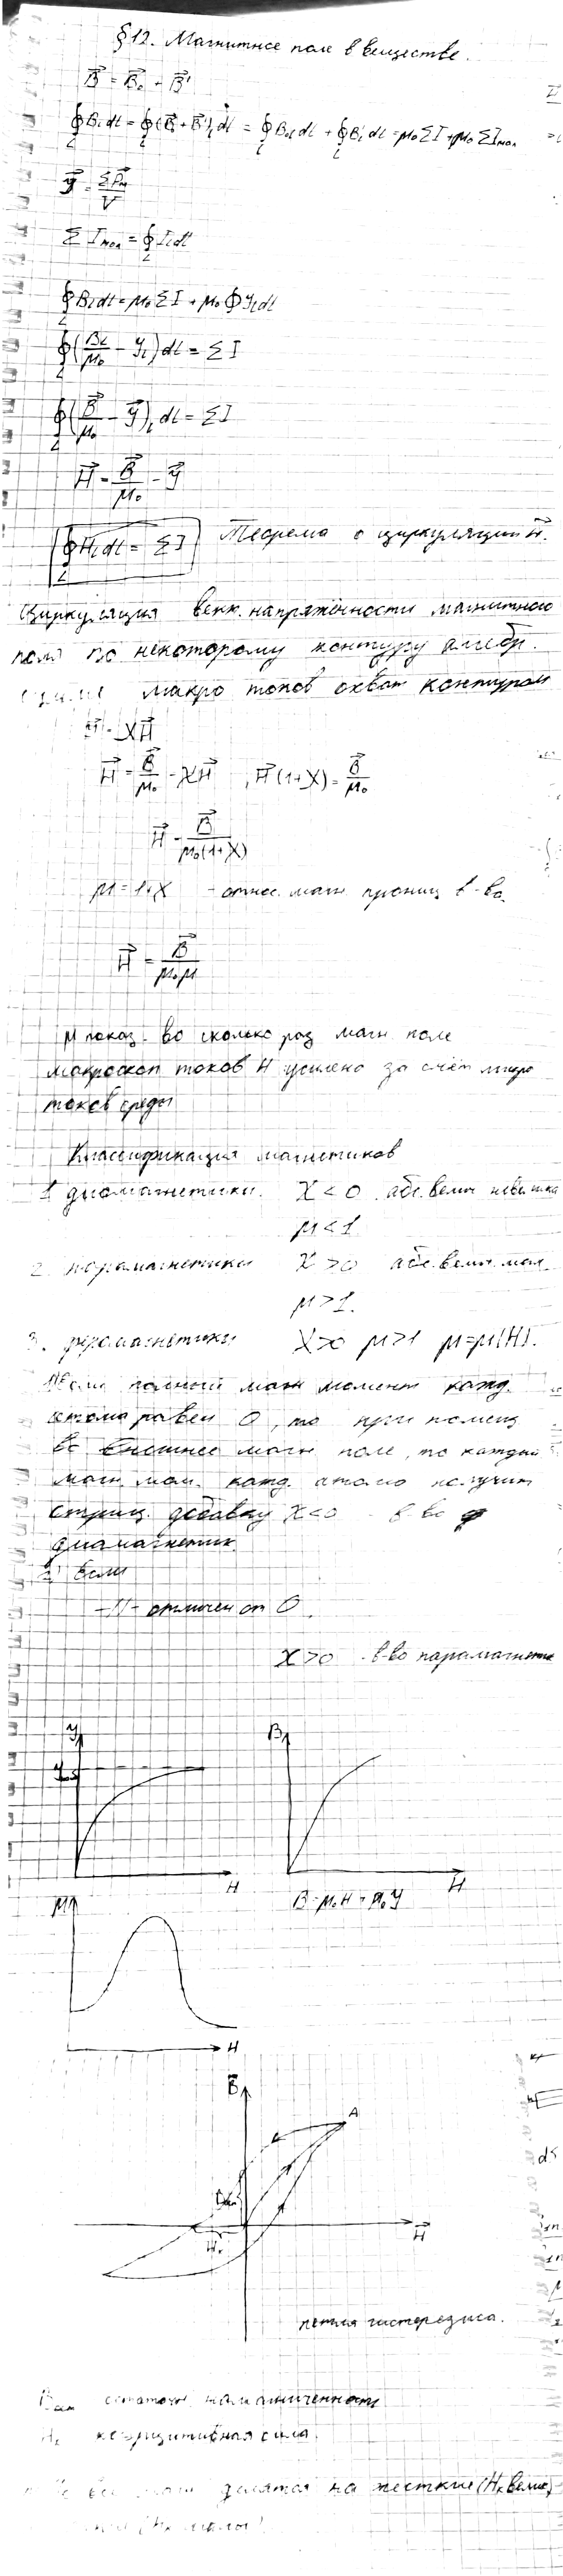 §12. Магнитное поле в веществе.
B⃗ = B⃗₀ + B⃗'
∮ Bₗdl = ∮(B⃗₀ + B⃗')ₗ dl = ∮ B₀ₗ dl + ∮ B'ₗ dl = μ₀ΣI + μ₀ΣIмол
J⃗ = ΣP⃗м / V
ΣIмол = ∮ Jₗ dl
∮ Bₗdl = μ₀ΣI + μ₀∮Jₗdl
∮(Bₗ/μ₀ - Jₗ) dl = ΣI
∮(B⃗/μ₀ - J⃗)ₗ dl = ΣI
H⃗ = B⃗/μ₀ - J⃗
∮Hₗdl = ΣI Теорема о циркуляции H⃗.
Циркуляция век. напряжённости магнитного
поля по некоторому контуру алгебр.
макро токов охват контуром
J⃗ = χH⃗
H⃗ = B⃗/μ₀ - χH⃗ , H⃗(1+χ) = B⃗/μ₀
H⃗ = B⃗/μ₀(1+χ)
μ = 1+χ - относ. магн прониц в-ва.
H⃗ = B⃗/μ₀μ
μ показ. во сколько раз магн поле
макроскоп токов H усилено за счёт микро
токов среды
Классификация магнетиков
1 диамагнетики. χ < 0 абс. велич невелика
μ < 1
2. парамагнетики χ > 0 абс. велич. мал.
μ > 1.
3. ферромагнетики χ > 0 μ > 1 μ = μ(H).
Если полный магн момент кажд.
атома равен 0, то при помещ
во внешнее магн поле, то каждый
магн. мом. кажд. атома получит
отриц. добавку χ < 0 в-во
диамагнетик.
2) Если
-//- отличен от 0.
χ > 0 - в-во парамагнетик
J
B
Jнас
H
H
B = μ₀H + μ₀J
μ
H
B⃗
A
Bост
H⃗
Hк
петля гистерезиса.
Bост остаточн намагниченность
Hк коэрцитивная сила.
делятся на жесткие (Hк велик)